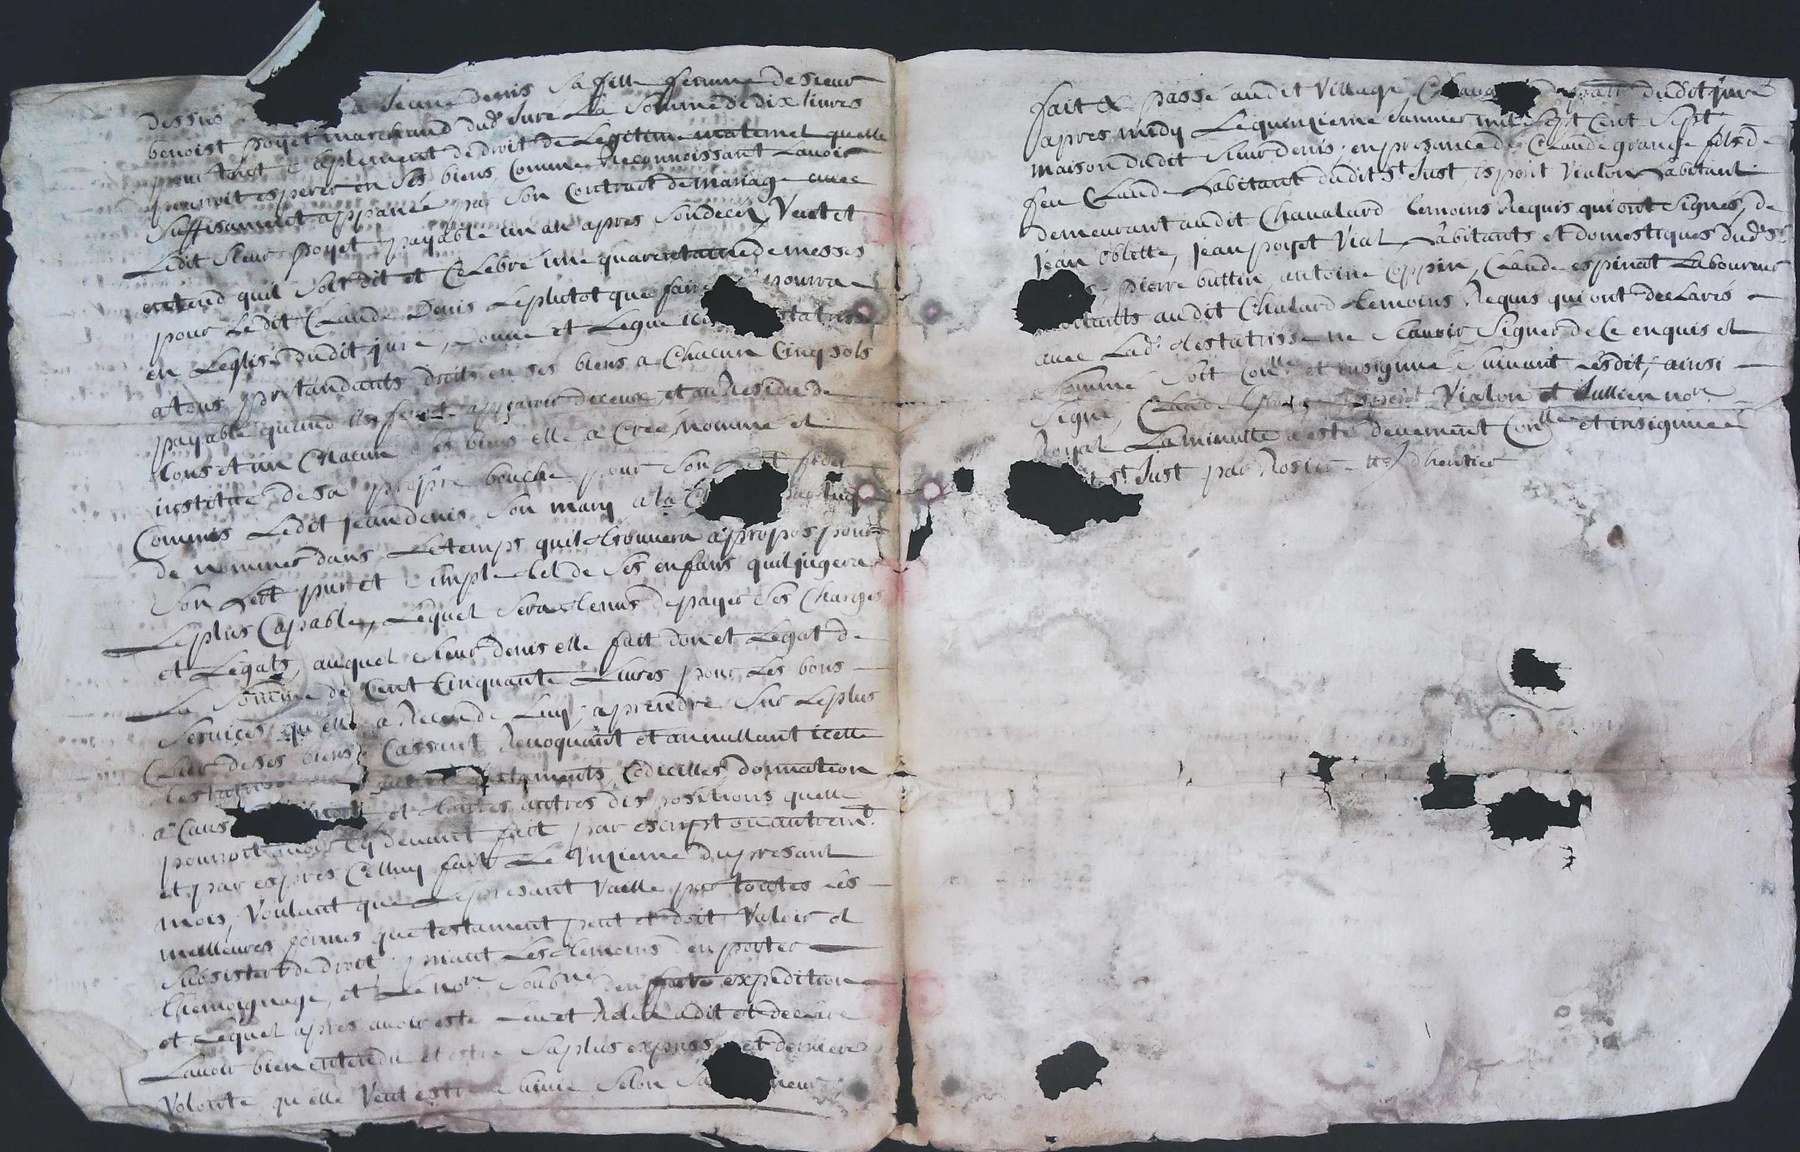 dessus a Jeane denis sa fille femme de sieur
benoist poyet marchand dud. Jure La Somme de dix livres
pour tout suplement de droit de Legitime maternel quelle
pourroit esperer en ses biens Comme Reconnoissant Lavoir
suffisamment appanée par son Contract de mariage avec
Ledit sieur poyet payable un an apres son decez, Veut et
entend quil soit dit et Celebré une quarentaine de messes
pour Ledit Claude Denis Le plutot que faire pourra
en Leglise dudit jure, donne et Legue
a tous pretendants droits en ses biens a Chacun Cinq sols
payable quand ils feront apparoir deceux, et au Residu de
tous et un Chacun ses biens elle a Creé, nommé et
institué de sa propre bouche pour son
Commis Ledit jean denis son mary a la
de nommer dans Le temps quil trouvera a propos pour
son hert pur et simple tel de ses enfans quil jugera
Le plus Capable, Lequel sera tenus de payer ses Charges
et Legats, auquel sieur denis elle fait don et Legat de
La somme de Cent Cinquante Livres pour Les bons
services qu'elle a Receu de Luy, a prendre sur Le plus
Clair de ses biens, Cassant Revoquant et annullant icelle
testatrisse testaments Codicilles donnation
a Caus et toutes autres dispositions quelle
pourroit avoir Cy devant fait par escript ou autremt.
et par expres Celluy fait Le unzieme du presant
mois, Voulant que Le presant Vaille par toutes Les
meilleures formes que testament peut et doit Valoir et
subsister de droit, priant Les temoins den porter
themoignage, et Le nore soubne den faire expedition
et Lequel apres avoir esté Leu et Releu a dit et declaré
Lavoir bien entendu et estre sa plus expresse et derniere
Volonté, qu'elle Veut estre suivie selon sa teneur
fait & passé audit Village dudit jure
apres midy Le quinzieme Janvier mil sept Cent sept
maison dudit sieur denis, en presance de Claude grange fils de
feu Claude habitant dudit St Just et pont Vialon habitant
demeurant audit Chavalard temoins Requis qui ont signés, de
jean oblette, jean poyet Vial habitants et domestiques dud. Sr
pierre buttin, antoine Coppin, Claude espinat Laboureur
habitants audit Chalard temoins Requis qui ont declarés
avec Lad. testatrisse ne sCavoir signer de Ce enquis et
Comme soit Conlle et insignué suivant Lesdit, ainsi
signé, Claude grange Vialon et Jullien nore
Royal La minutte a esté deuement Conllé et insignuée
St Just par Rosier